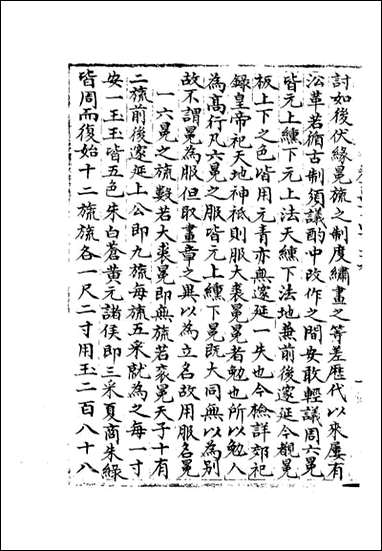 討如後伏緣冕旒之制度繡畫之等差歷代以來屢有
㳂革若循古制須議酌中改作之間安敢輕議周六冕
皆元上纁下元上法天纁下法地兼前後邃延今觀冕
板上下之色皆用元青亦無邃延一失也今檢詳郊祀
錄皇帝祀天地神祗則服大裘冕冕者勉也所以勉人
為高行凡六冕之服皆元上纁下冕既大同無以為别
故不謂冕為服但取畫章之異以為立名故用服名冕
一六冕之旒數若大裘冕即無旒若衮冕天子十有
二旒前後邃延上公即九旒每旒五采就為之每一寸
安一玉玉皆五色朱白蒼黄元諸侯即三采夏商朱綠
皆周而復始十二旒旒各一尺二寸用玉二百八十八